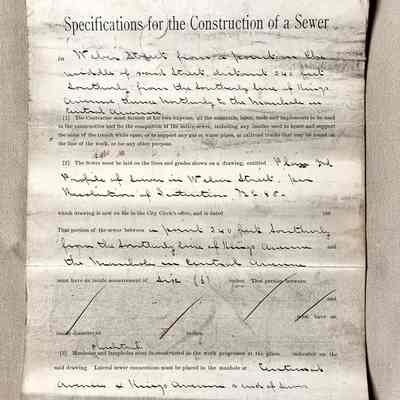 Specifications for the Construction of a Sewer
In Weber Street from a point in the
middle of said Street, distant 240 feet
Southerly from the Southerly line of Kings
Avenue, thence northerly to the Manhole in
Central Avenue
[1] The Contractor must furnish at his own expense, all the materials, labor, tools and implements to be used
in the construction and for the completion of the entire sewer, including any lumber used to brace and support
the sides of the trench while open, or to support any gas or water pipes, or railroad tracks that may be found on
the line of the work, or for any other purpose.
[2] The Sewer must be laid on the lines and grades shown on a drawing, entitled Plan and
Profile of Sewer in Weber Street, per
Resolution of Intention
which drawing is now on file in the City Clerk's office, and is dated 188
That portion of the sewer between a point 240 feet Southerly
from the Southerly line of Kings Avenue and
the Manhole in Central Avenue
must have an inside measurement of six (6) inches. That portion between
and
must have an
inside diameter of inches.
[3] Manholes and lampholes must be constructed as the work progresses at the places indicated on the
said drawing. Lateral sewer connections must be placed in the manhole at Central
Avenue & Kings Avenue